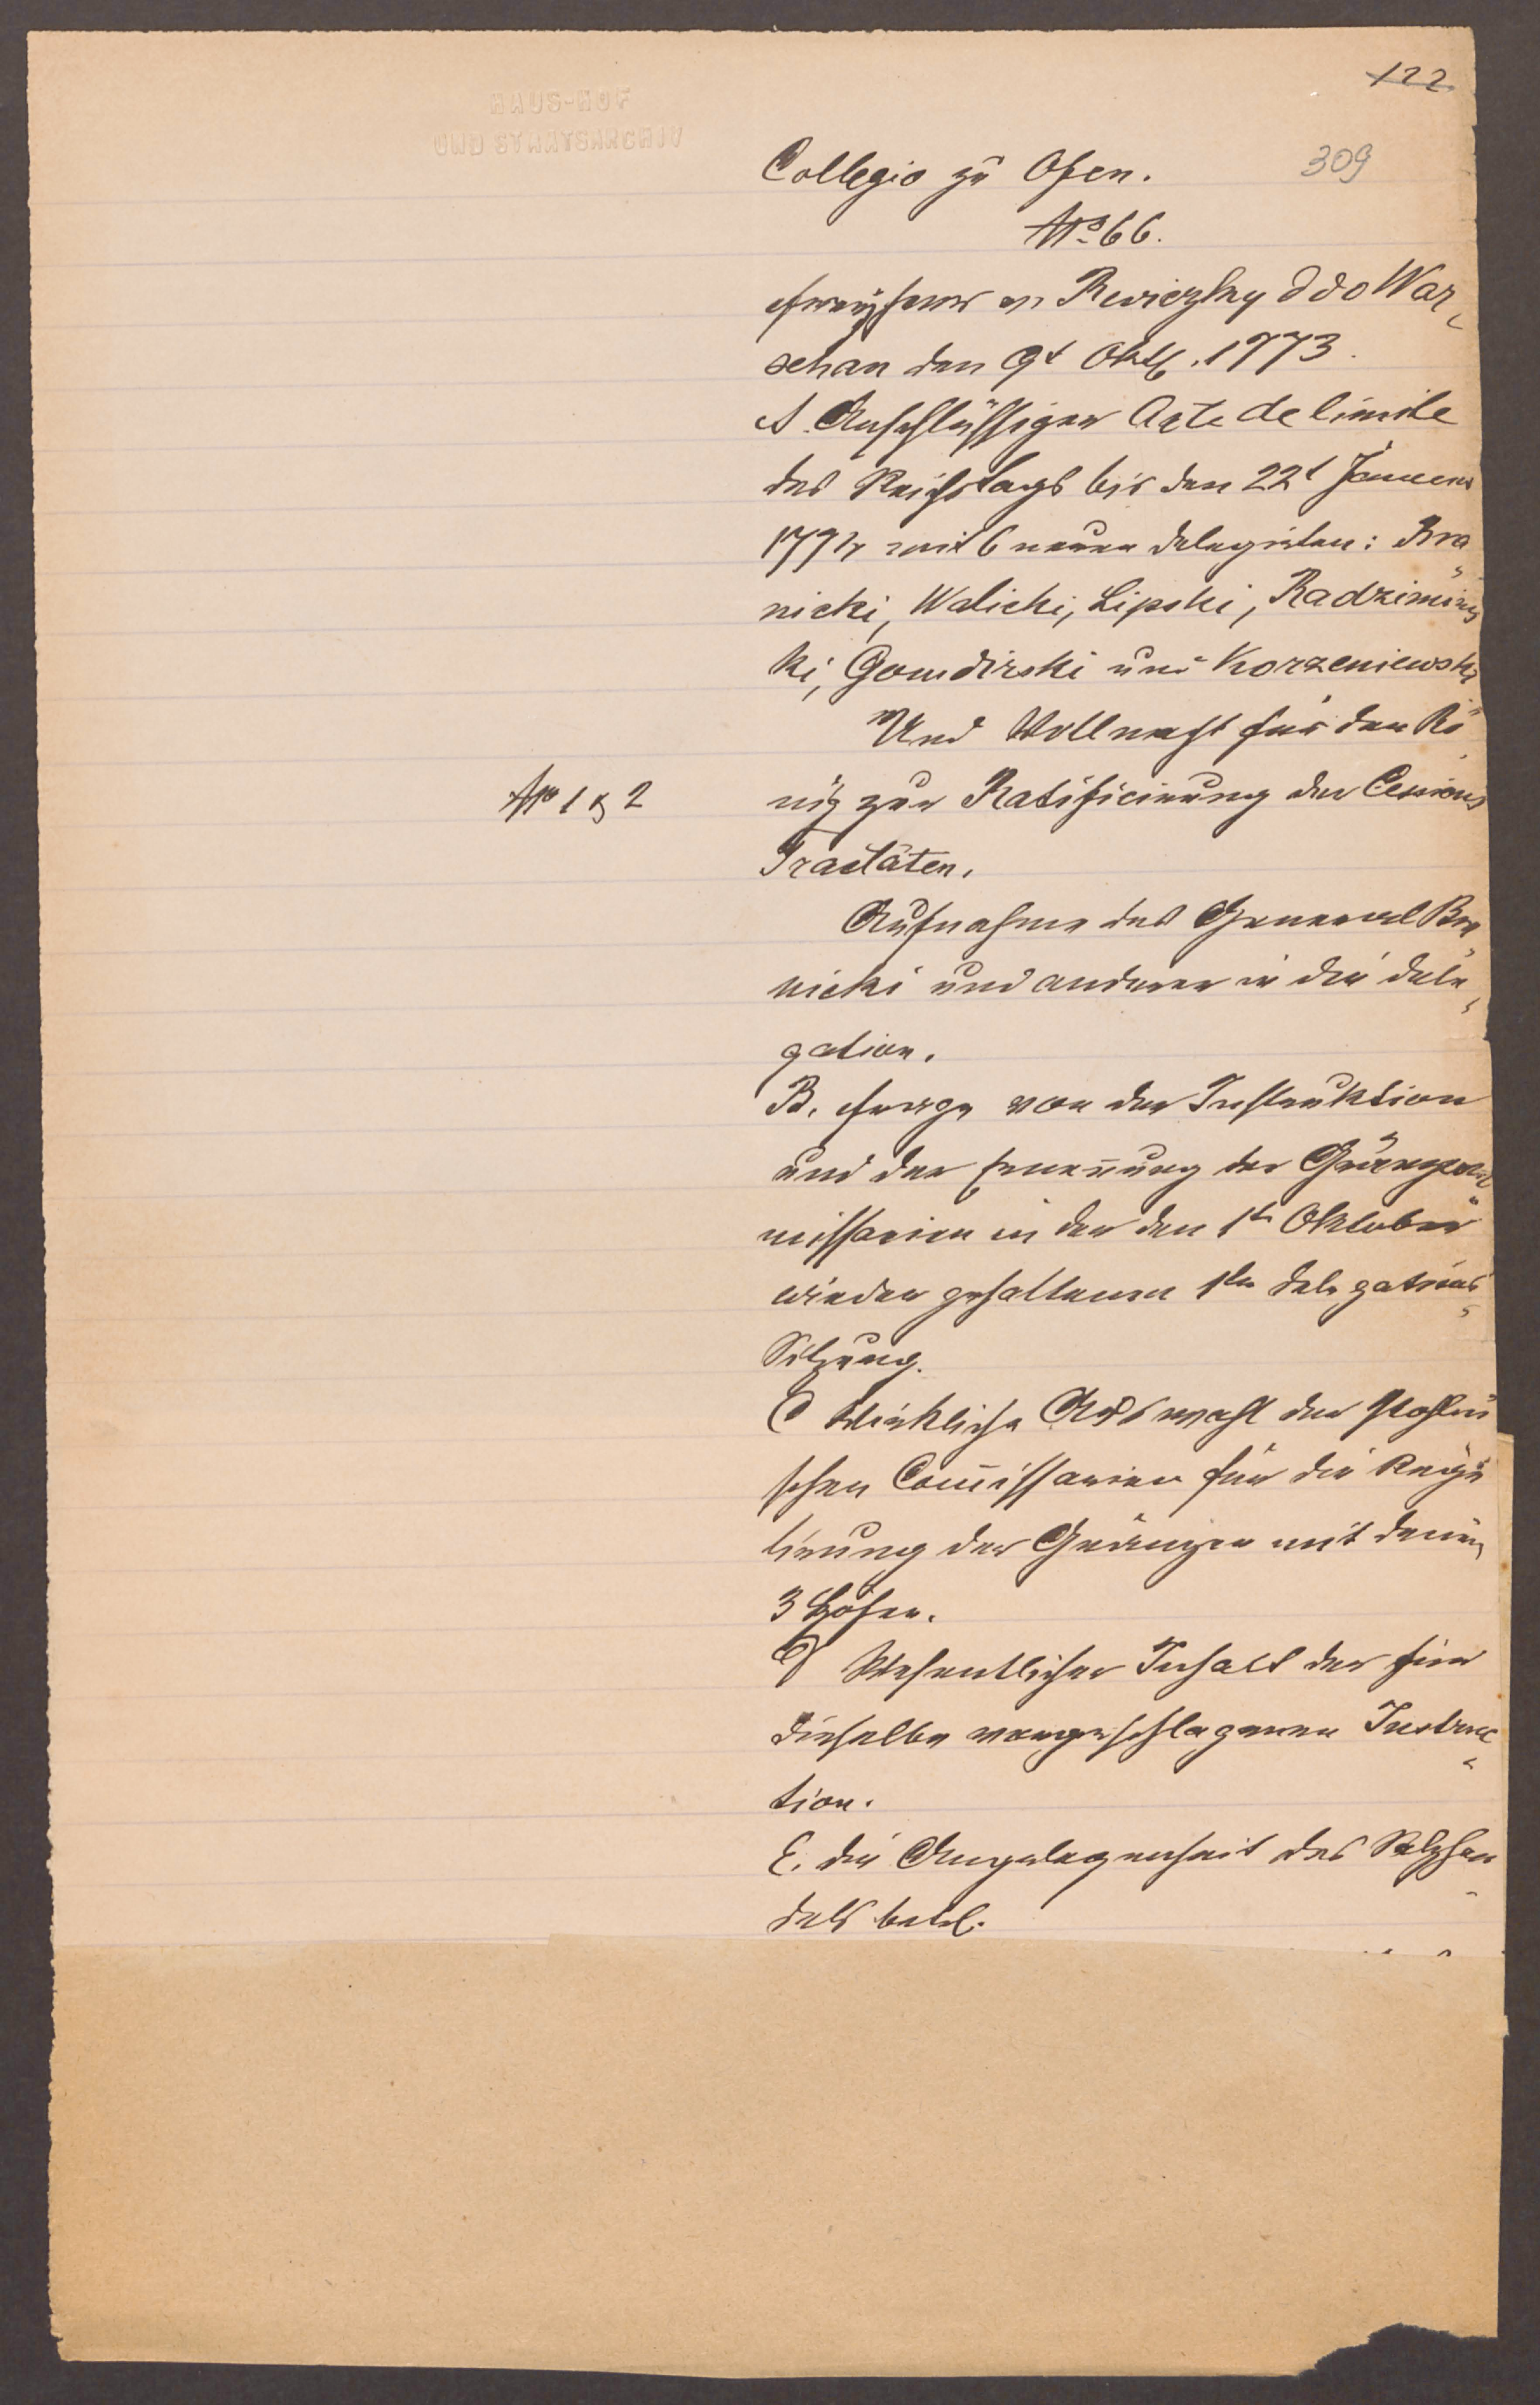 HAUS-HOF
UND STAATSARCHIV
122
309
Collegio zu Ofen.
No 66.
Freyherr v. Reviczky ddo War„
schau den 9t Oktb. 1773.
A. Anschlüssiger Acte de limite
des Reichstags bis den 22t Januar
1774 mit 6 neuen Delegirten: Bra„
nicki, Walicki, Lipski, Radzimins
ki, Gomdirski und Korzeniewski
Und Vollmacht für den Kö„
No 1 & 2
nig zur Ratificirung der Cessions
Tractäten.
Aufnahme des General Bra„
nicki und anderer in die Dele„
gation.
B. von der Instruktion
und der Ernennung der Gränzcom„
missarien in der den 1tn Oktober
wieder gehaltenen 1ten Delegations„
Sitzung.
C Wirkliche Auswahl der Pohlni
schen Com̅issarien für die Regu
lirung der Gränzen mit denen
3 Höfen.
D Wesentlicher Inhalt der für
dieselbe vorgeschlagenen Instruc„
tion.
E. die Angelegenheit des Salzhan„
dels betrf.